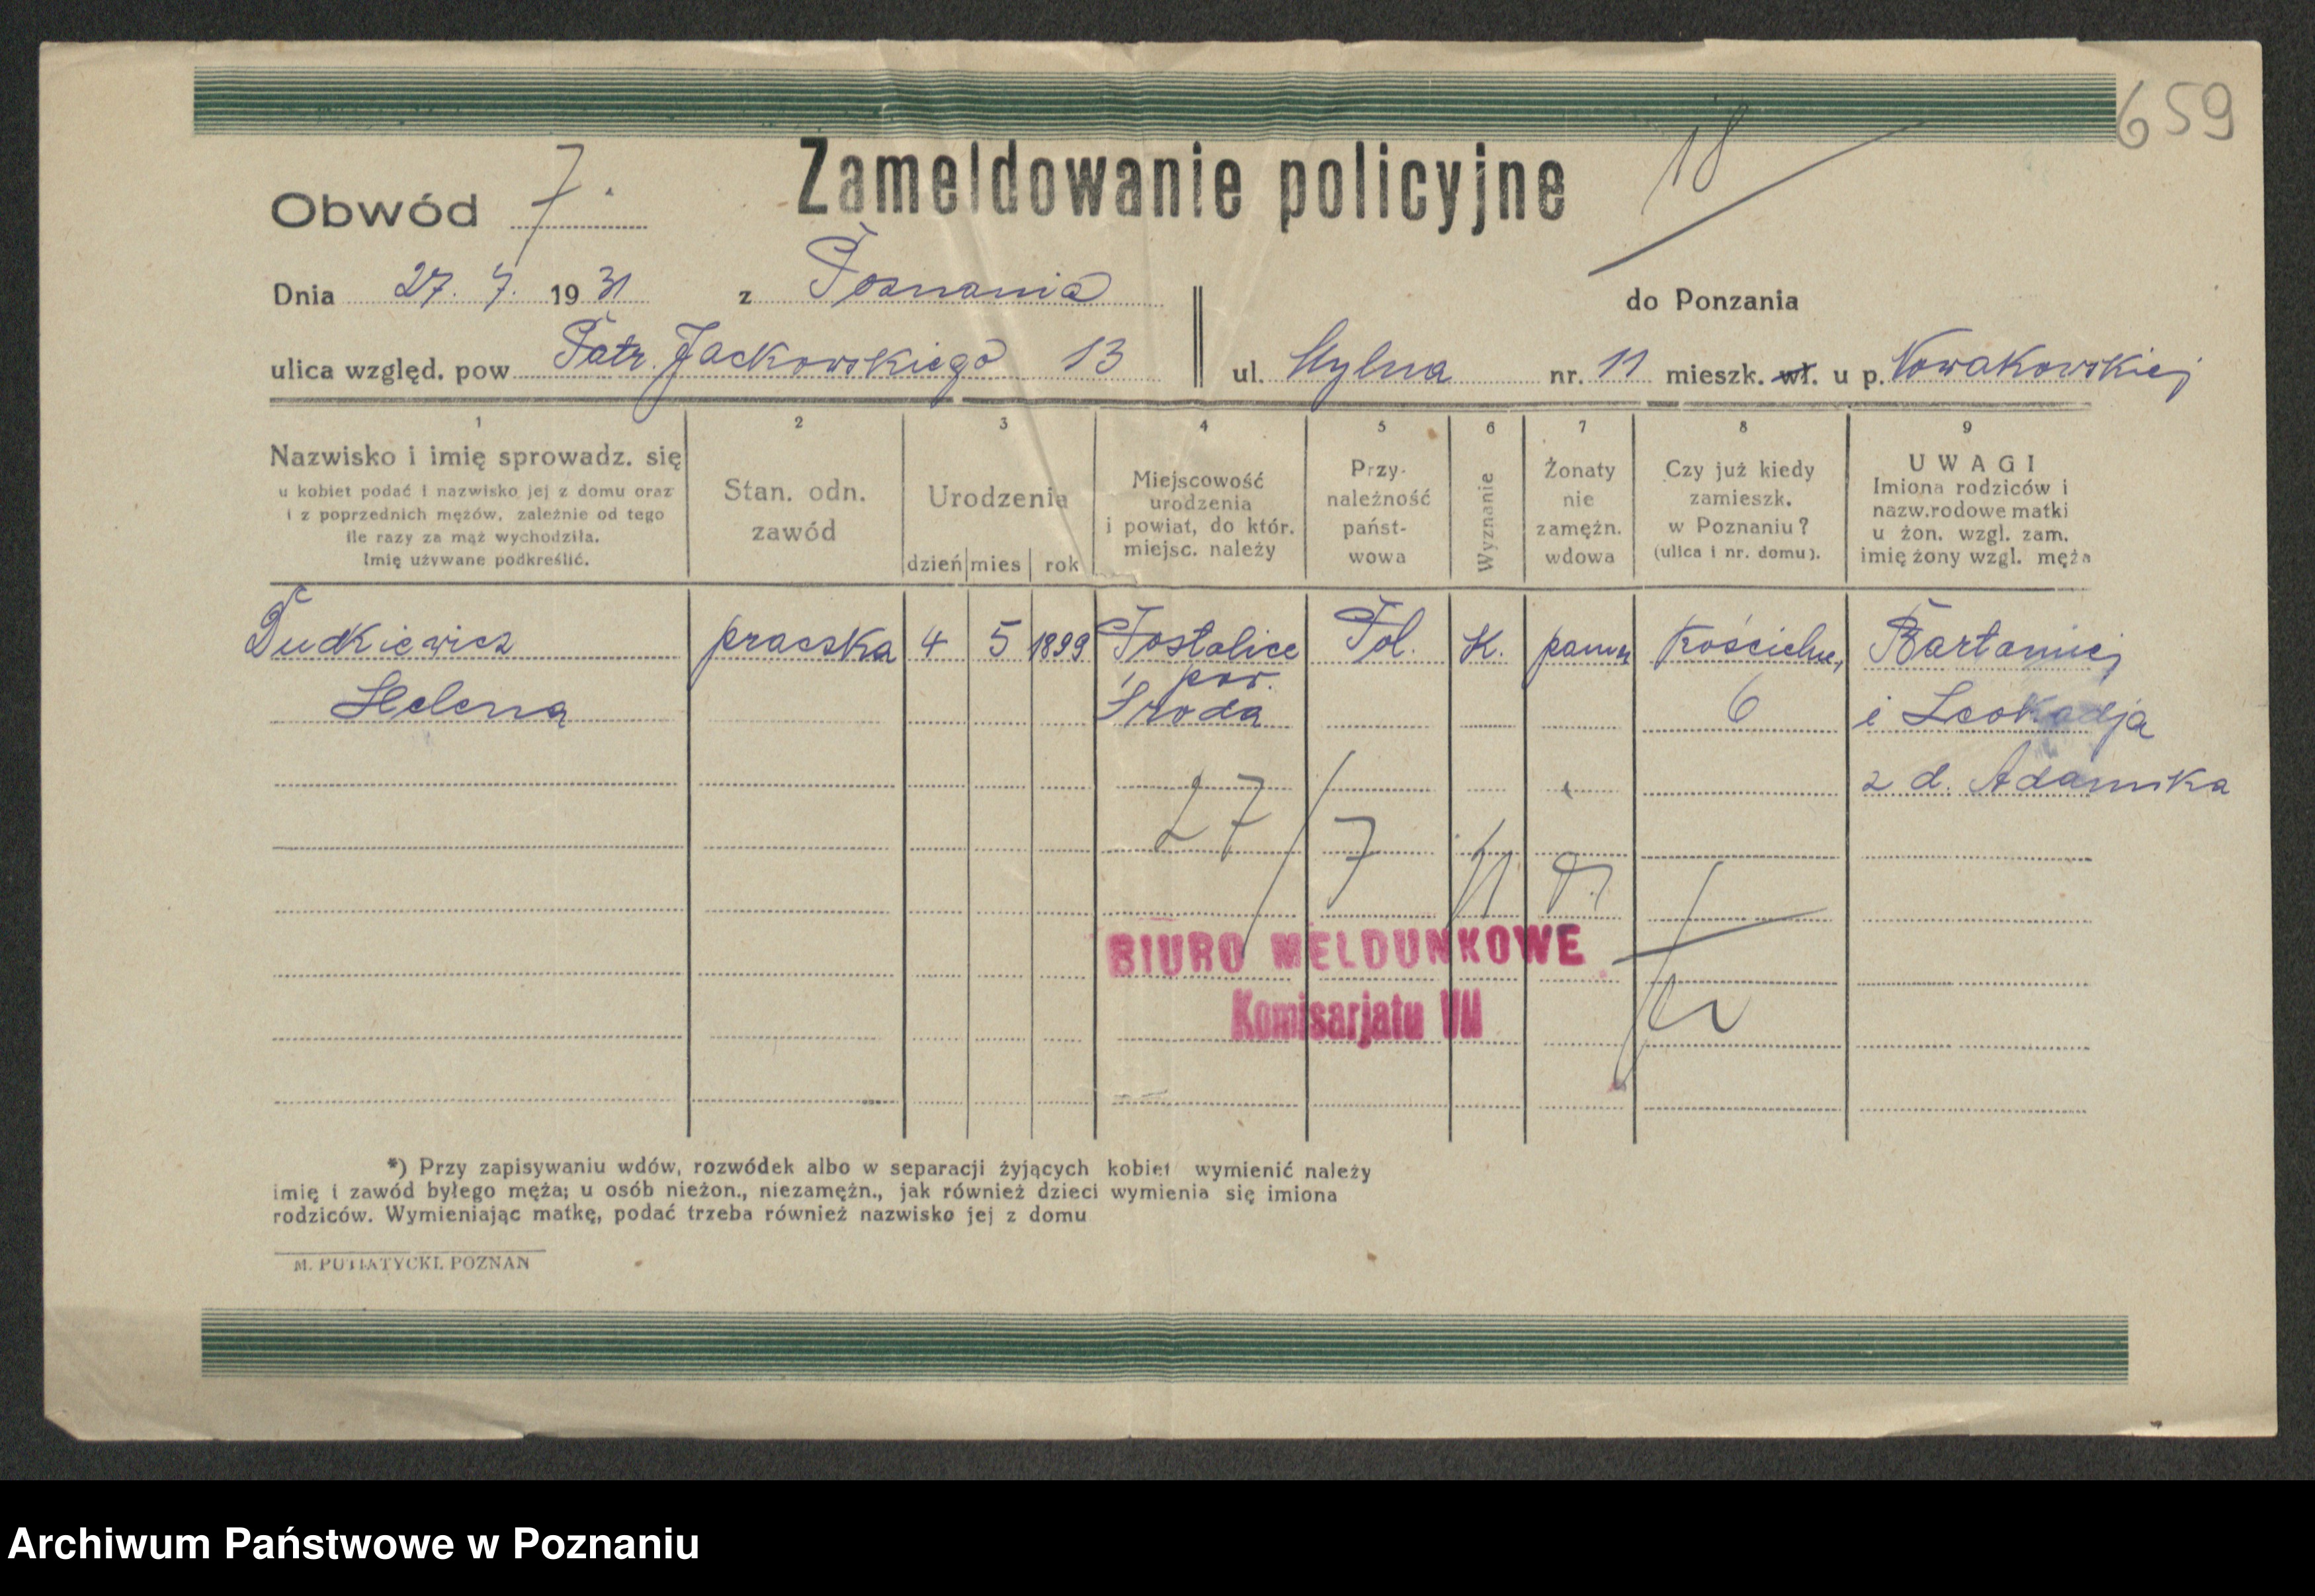 659
Zameldowanie policyjne
18
Obwód 7.
Dnia 27. 7. 1931 z Poznania do Ponzania
ulica względ. pow Patr. Jackowskiego 13 ul. Mylna nr. 11 mieszk. wł. u p. Nowakowskiej
1 2 3 4 5 6 7 8 9
Nazwisko i imię sprowadz. się
u kobiet podać i nazwisko jej z domu oraz
i z poprzednich mężów, zależnie od tego
ile razy za mąż wychodziła.
Imię używane podkreślić.
Stan. odn.
zawód
Urodzenia
dzień mies rok
Miejscowość
urodzenia
i powiat, do któr.
miejsc. należy
Przy-
należność
państ-
wowa
Wyznanie
Żonaty
nie
zamężn.
wdowa
Czy już kiedy
zamieszk.
w Poznaniu?
(ulica i nr. domu).
UWAGI
Imiona rodziców i
nazw.rodowe matki
u żon. wzgl. zam.
imię żony wzgl. męża
Dudkiewicz praczka 4 5 1899 Postalice Pol. K. panna Kościelna, Bartłomiej
pow.
Helena Środa 6 i Leokadja
z d. Adamska
27/7
BIURO MELDUNKOWE
Komisarjatu VII
*) Przy zapisywaniu wdów, rozwódek albo w separacji żyjących kobiet wymienić należy
imię i zawód byłego męża; u osób nieżon., niezamężn., jak również dzieci wymienia się imiona
rodziców. Wymieniając matkę, podać trzeba również nazwisko jej z domu
M. PUTIATYCKI. POZNAN
Archiwum Państwowe w Poznaniu